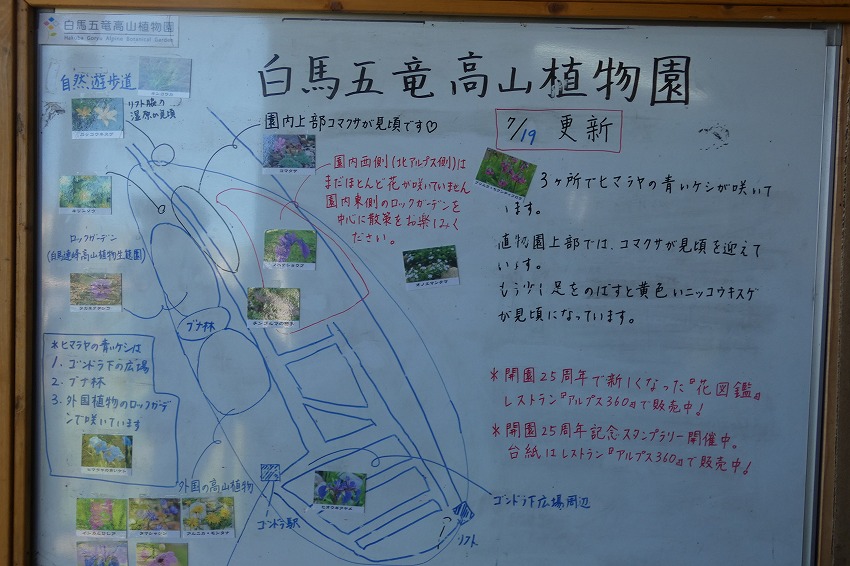 白馬五竜高山植物園
Hakuba Goryu Alpine Botanical Garden
白馬五竜高山植物園
7/19 更新
自然遊歩道
リフト脇の
湿原が見頃
ニッコウキスゲ
園内上部コマクサが見頃です♡
コマクサ
園内西側(北アルプス側)は
まだほとんど花が咲いていません
園内東側のロックガーデンを
中心に散策をお楽しみく
ださい。
3ヶ所でヒマラヤの青いケシが咲いて
います。
植物園上部では、コマクサが見頃を迎えて
います。
もう少し足をのばすと黄色いニッコウキスゲ
が見頃になっています。
ロックガーデン
(白馬連峰高山植物生態園)
タカネナデシコ
ノハナショウブ
チングルマの穂
ブナ林
*ヒマラヤの青いケシは
1. ゴンドラ下の広場
2. ブナ林
3. 外国植物のロックガーデ
ンで咲いています
ヒマラヤの青いケシ
*開園25周年で新しくなった『花図鑑』
レストラン『アルプス360』で販売中!
*開園25周年記念スタンプラリー開催中。
台紙はレストラン『アルプス360』で販売中!
外国の高山植物
ゴンドラ駅
ヒオウギアヤメ
ゴンドラ下広場周辺
リフト
アルニカ・モンタナ